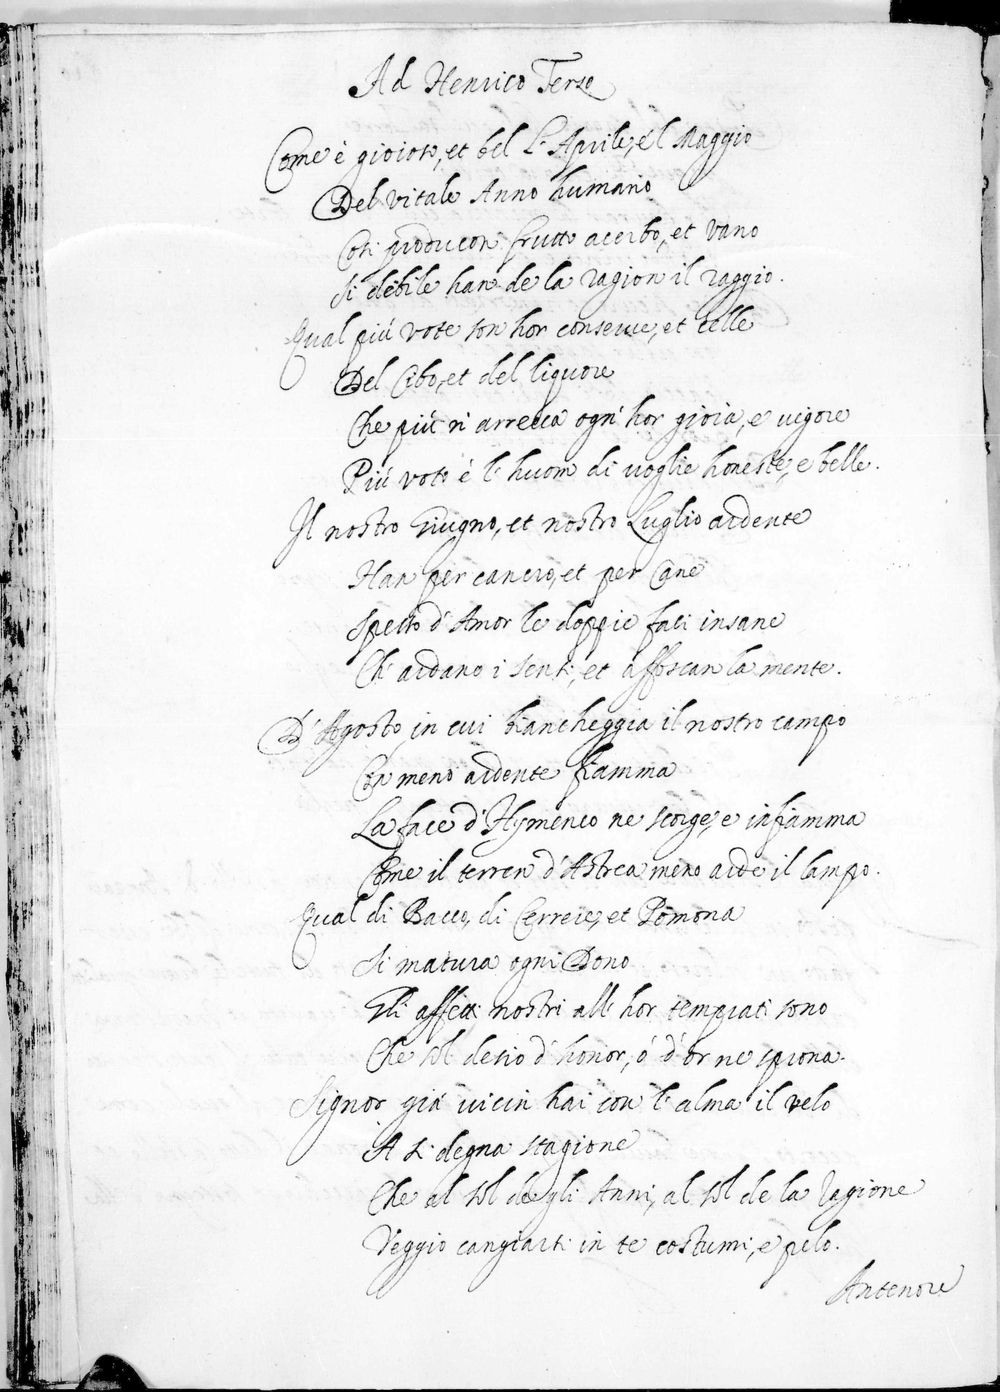 Ad Henrico Terzo
Come è gioioso, et bel l'Aprile, e'l Maggio
Del vitale Anno humano
Così producon frutto acerbo, et vano
Si debile han de la ragion il raggio.
Qual più vote son hor conserve, et celle
Del Cibo, et del liquore
Che più n'arrecca ogn'hor gioia, e vigore
Più voto è l'huom di voglie honeste, e belle.
Il nostro Giugno, et nostro Luglio ardente
Han per cancro, et per Cane
Spesso d'Amor le doppie faci insane
Ch'ardano i sensi, et affoscan la mente.
D'Agosto in cui biancheggia il nostro campo
Con meno ardente fiamma
La face d'Hymeneo ne scorge, e infiamma
Come il terren d'Astrea meno arde il lampo.
Qual di Bacco, di Cerrere, et Pomona
Si matura ogni Dono
Gli affetti nostri all'hor temprati sono
Che sol desio d'honor, ó d'or ne sprona.
Signor già vicin hai con l'alma il velo
A sì degna stagione
Che al sol degli Anni, al sol de la ragione
Veggio cangiarsi in te costumi, e pelo.
Antenore